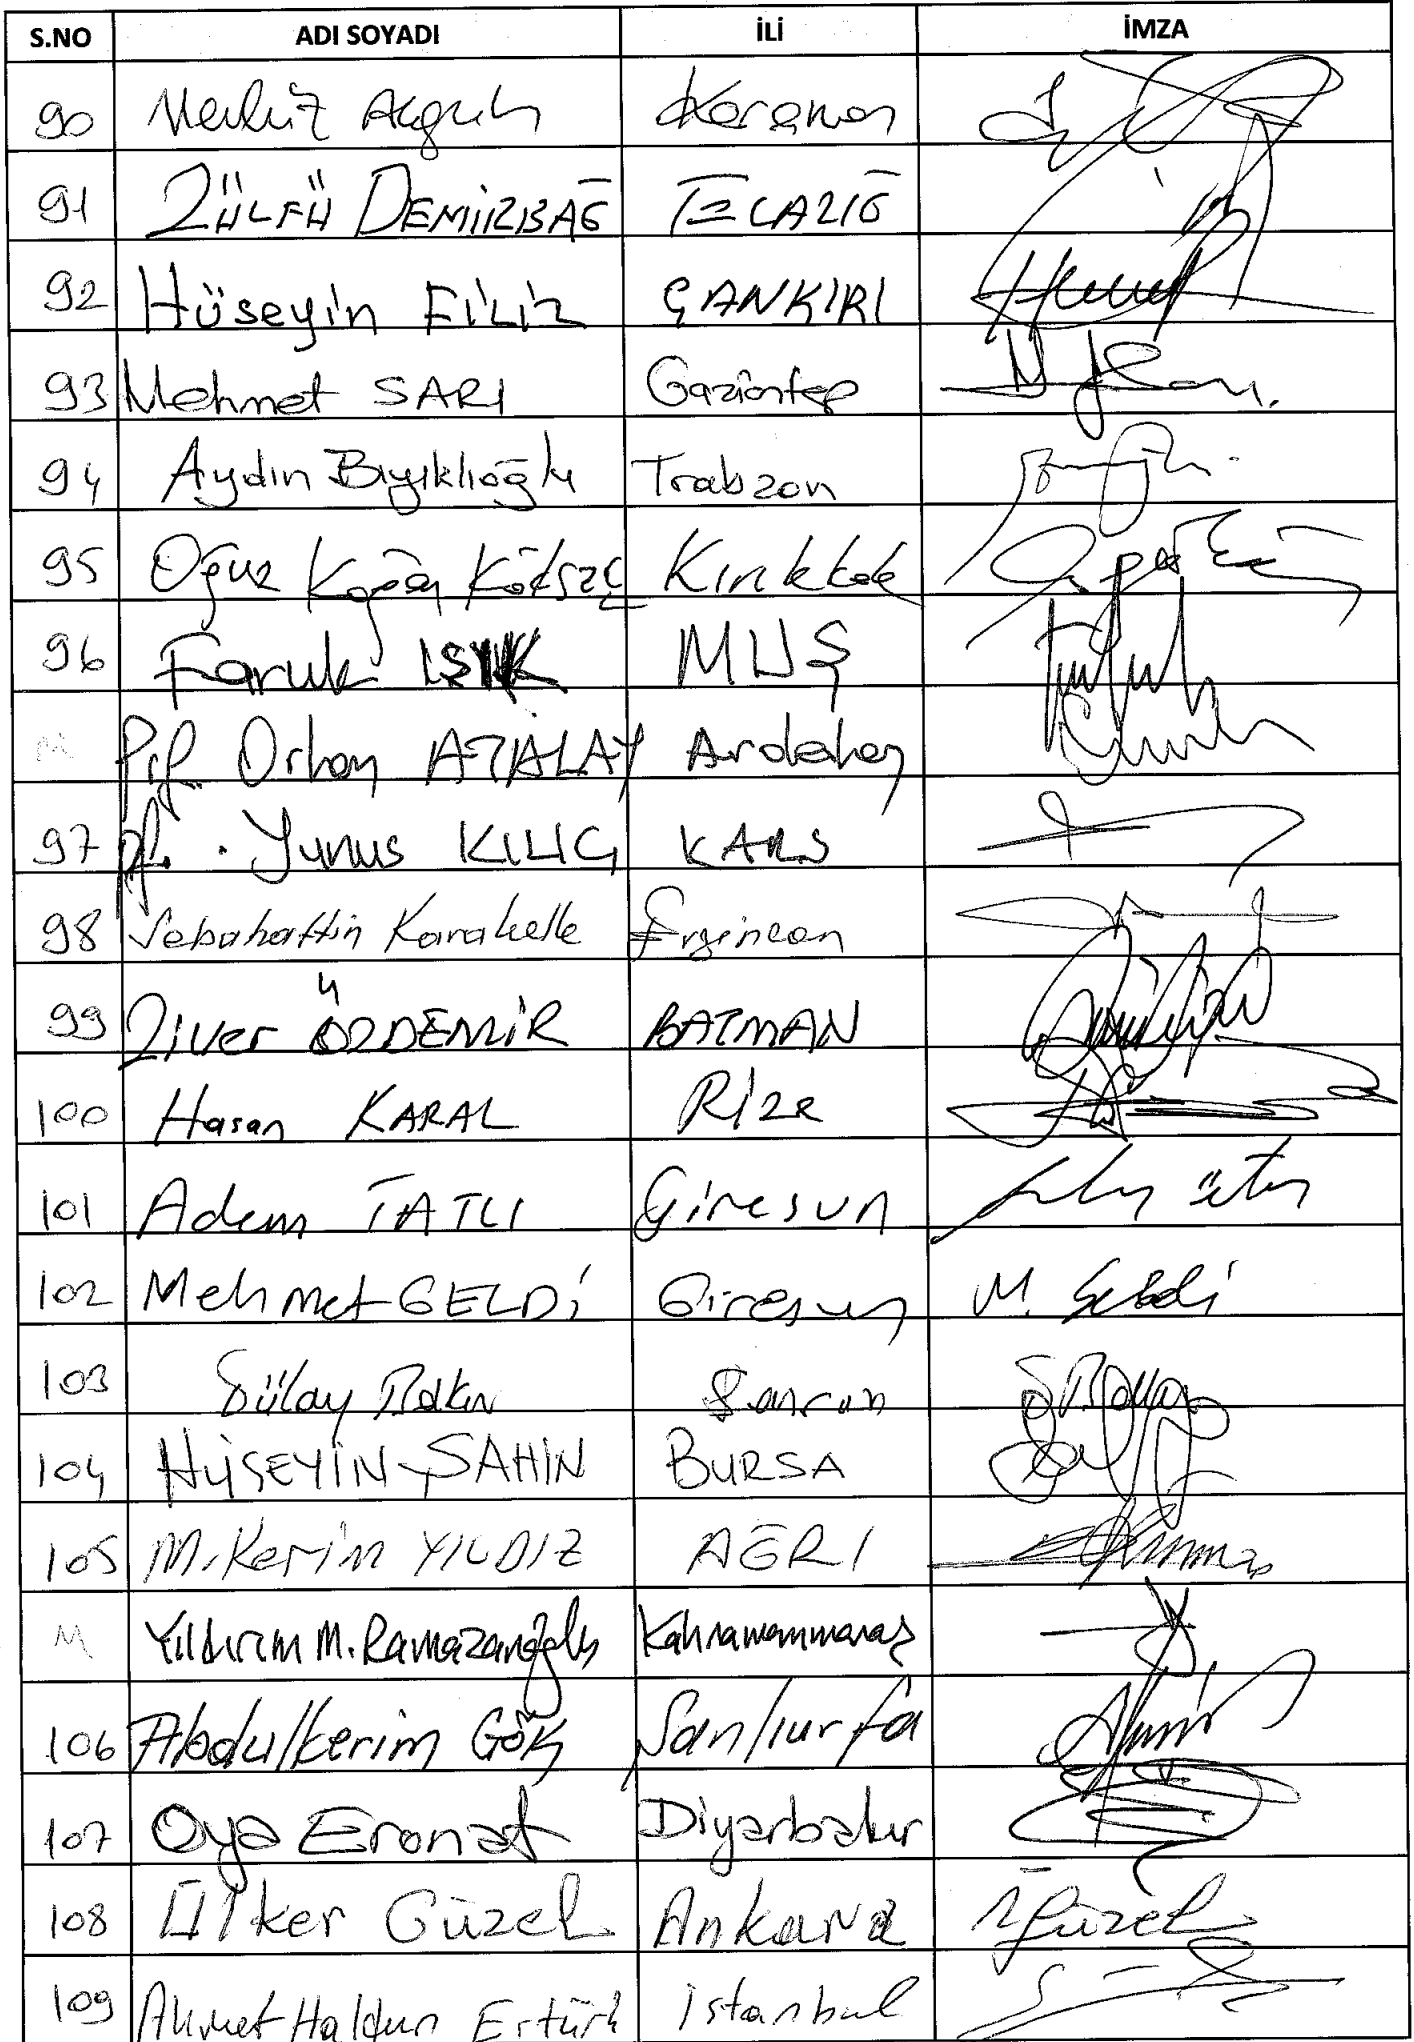 S.NO ADI SOYADI İLİ İMZA
90 Mevlüt Akgün Karaman
91 ZÜLFÜ DEMİRBAĞ ELAZIĞ
92 Hüseyin FİLİZ ÇANKIRI
93 Mehmet SARI Gaziantep
94 Aydın Bıyıklıoğlu Trabzon
95 Oğuz Kağan Köksal Kırıkkale
96 Faruk IŞIK MUŞ
M Prf. Orhan ATALAY Ardahan
97 Prf. Yunus KILIÇ KARS
98 Sebahattin Karakelle Erzincan
99 Ziver ÖZDEMİR BATMAN
100 Hasan KARAL Rize
101 Adem TATLI Giresun
102 Mehmet GELDİ Giresun M. Geldi
103 Samsun
104 HÜSEYİN ŞAHİN BURSA
105 M. Kerim YILDIZ AĞRI
M Yıldırım M. Ramazanoğlu Kahramanmaraş
106 Abdulkerim Gök Şanlıurfa
107 Oya Eronat Diyarbakır
108 Ülker Güzel Ankara Ü Güzel
109 Ahmet Haldun Ertürk İstanbul